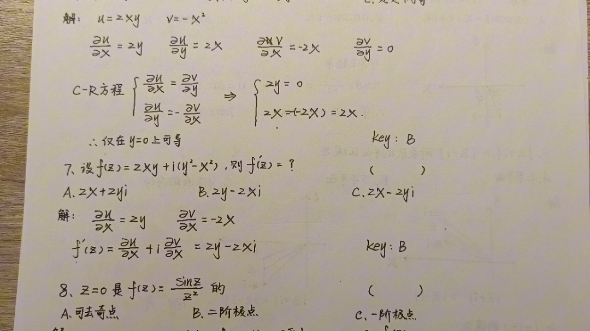 解: u=2xy v=-x²
∂u/∂x = 2y ∂u/∂y = 2x ∂v/∂x = -2x ∂v/∂y = 0
C-R方程 { ∂u/∂x = ∂v/∂y ⇒ { 2y = 0
∂u/∂y = -∂v/∂x 2x=-(-2x)=2x.
∴仅在y=0上可导 key: B
7、设f(z)=2xy+i(y²-x²),则f'(z)=? ( )
A. 2x+2yi B. 2y-2xi C. 2x-2yi
解: ∂u/∂x = 2y ∂v/∂x = -2x
f'(z)= ∂u/∂x + i ∂v/∂x = 2y-2xi key: B
8、z=0是f(z)= sinz/z² 的 ( )
A. 可去奇点 B. 二阶极点 C. 一阶极点